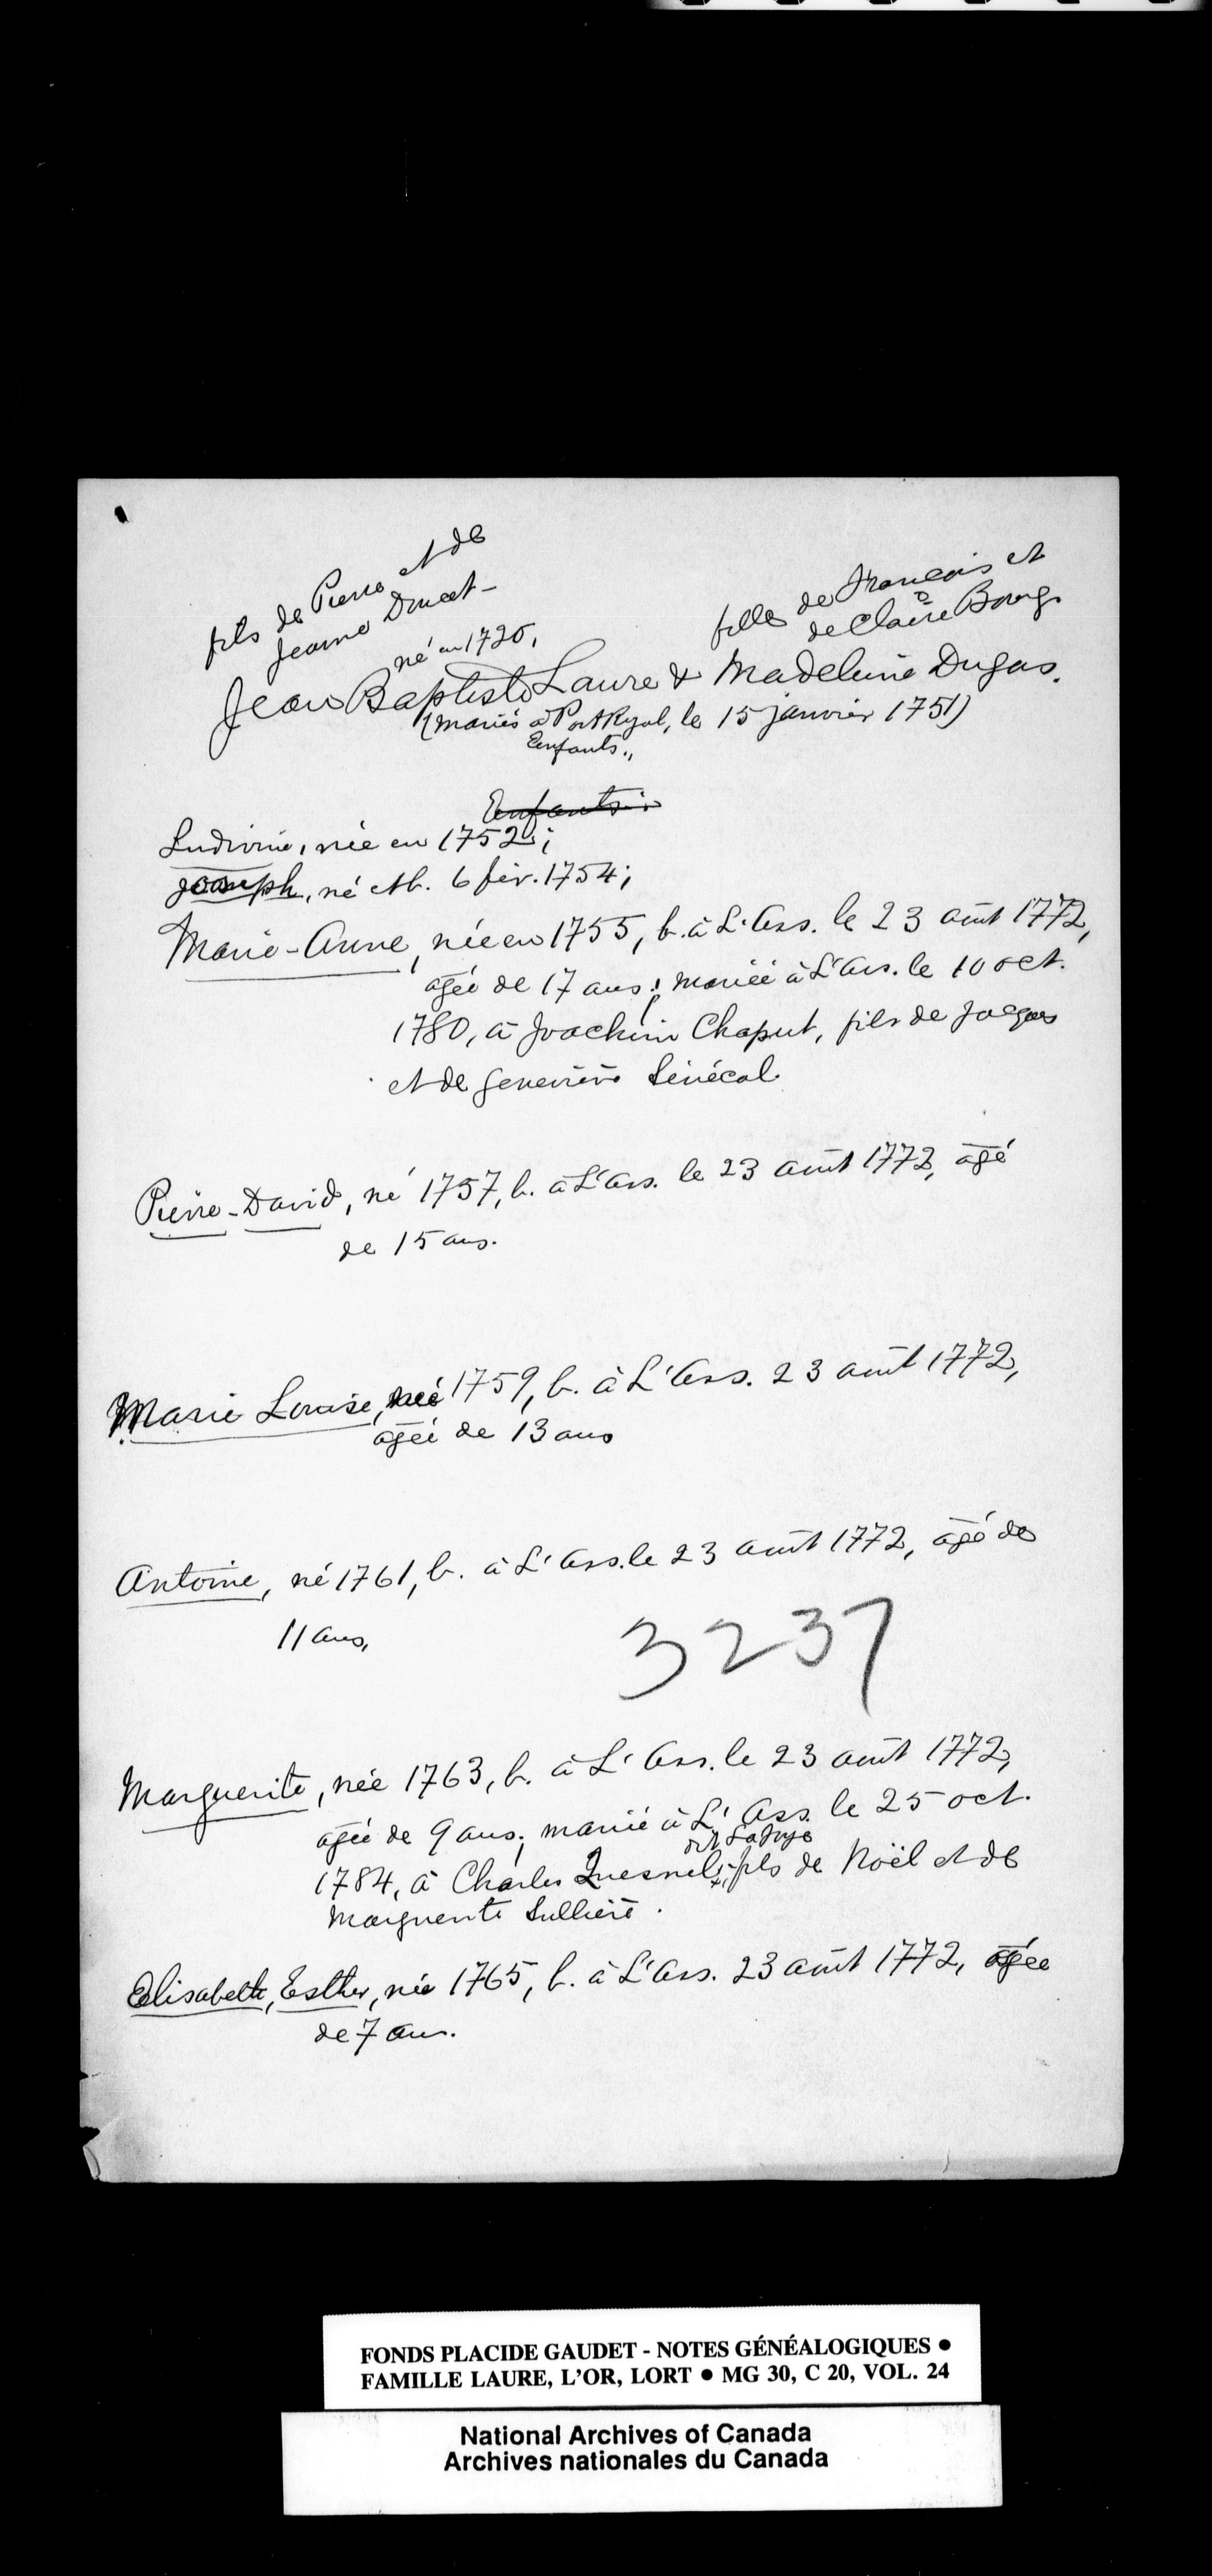 fils de Pierre et de
Jeanne Doucet-
né en 1726,
fille de François et
de Claire Bourg.
Jean Baptiste Laure & Madeleine Dugas.
(mariés à Port Ryal, le 15 janvier 1751)
Enfants.,
Enfants:
Ludivine, née en 1752;
Joseph, né et b. 6 fév. 1754;
Marie-Anne, née en 1755, b. à L'Ass. le 23 août 1772,
agée de 17 ans; mariée à L'Ass. le 10 oct.
1780, à Joachim Chaput, fils de Jacques
et de Geneviève Sénécal.
Pierre-David, né 1757, b. à L'Ass. le 23 août 1772, âgé
de 15 ans.
Marie Louise, née 1759, b. à L'Ass. 23 août 1772,
agée de 13 ans
Antoine, né 1761, b. à L'Ass. le 23 août 1772, âgé de
11 ans,
3237
Marguerite, née 1763, b. à L'Ass. le 23 août 1772,
agée de 9 ans; mariée à L'Ass. le 25 oct.
dit
1784, à Charles Quesnel, fils de Noël et de
Marguerite Sullière.
Elisabeth, Esther, née 1765, b. à L'Ass. 23 août 1772, agée
de 7 ans.
FONDS PLACIDE GAUDET - NOTES GÉNÉALOGIQUES ●
FAMILLE LAURE, L'OR, LORT ● MG 30, C 20, VOL. 24
National Archives of Canada
Archives nationales du Canada